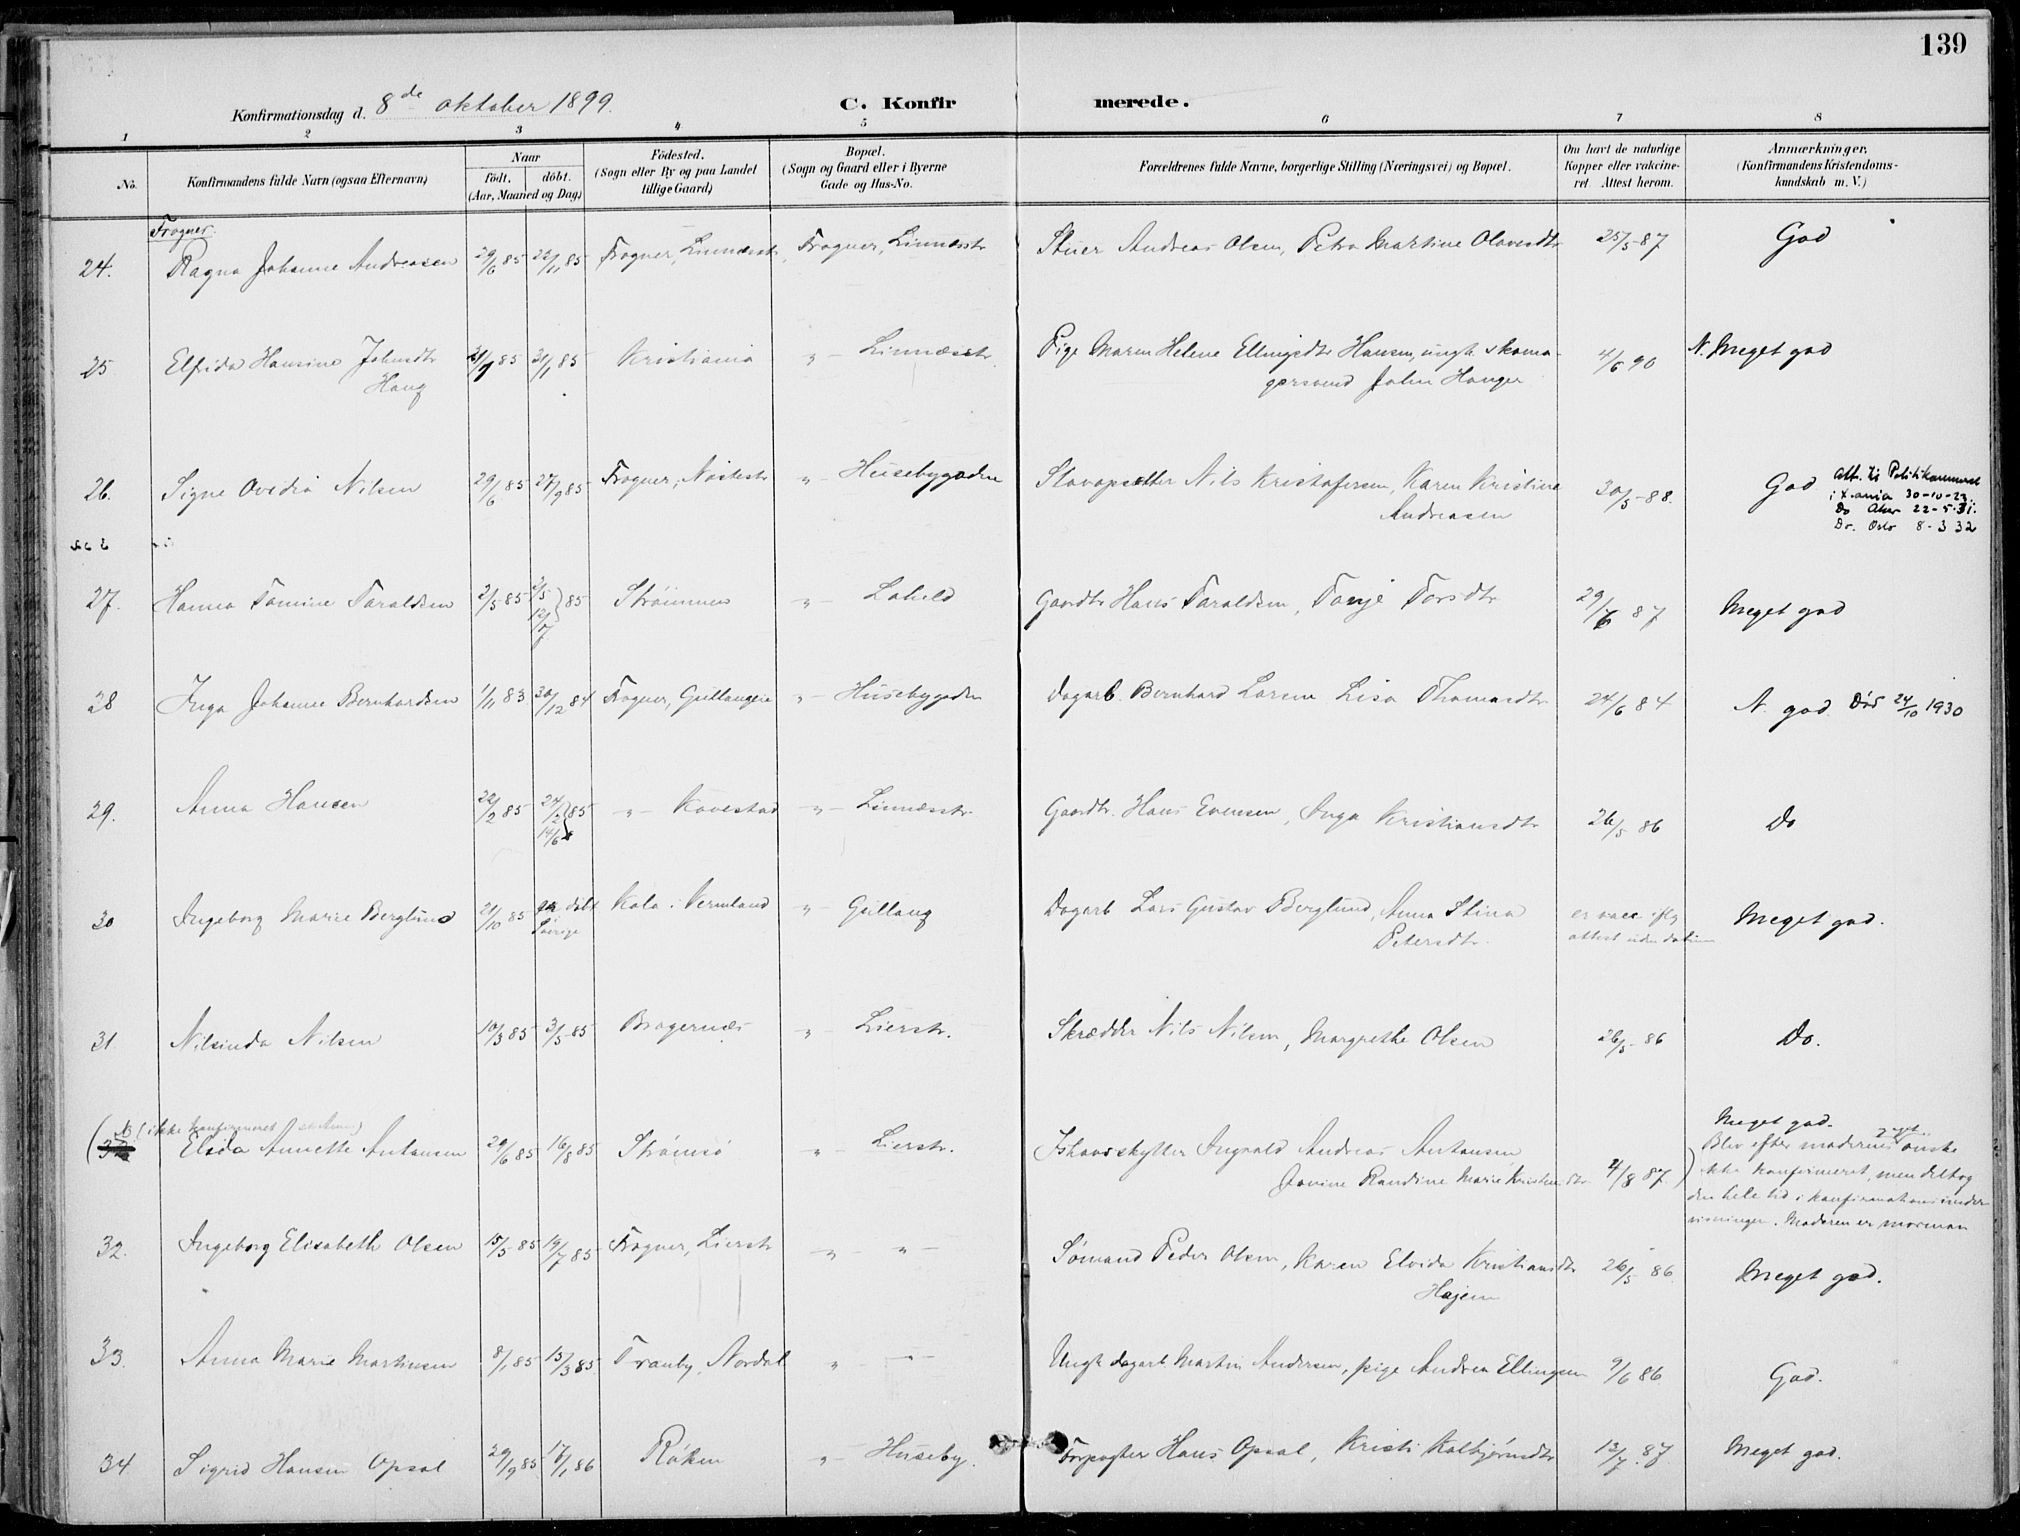 139
Konfirmationsdag d. 8de oktober 1899.
C. Konfirmerede.
1 2 3 4 5 6 7 8
No.
Konfirmandens fulde Navn (ogsaa Efternavn)
Naar
født. døbt.
(Aar, Maaned og Dag)
Fødested.
(Sogn eller By og paa Landet
tillige Gaard)
Bopæl.
(Sogn og Gaard eller i Byerne
Gade og Hus-No.
Forældrenes fulde Navne, borgerlige Stilling (Næringsvei) og Bopæl.
Om havt de naturlige
Kopper eller vakcine-
ret. Attest herom.
Anmærkninger.
(Konfirmandens Kristendoms-
kundskab m. V.)
Frogner.
24. Ragna Johanne Andreasen 29/6 85 22/11 85 Frogner, Linnesstr. Frogner, Linnesstr Stuer Andreas Olsen, Petra Martine Olavesdtr 25/5 87 God
25 Elfrida Hansine Johnsdtr 21/1 85 Kristiania " Linnæsstr. Pige Maren Helene Ellingsdtr Hansen, ungk. skoma- 4/6 90 N. Meget god
Haug gersvend John Hauger
26. Signe Ovidia Nilsen 29/6 85 27/9 85 Frogner, Nøstestr " Husebygaden Nils Kristofersen, Karen Kristine 30/5 88. God
Andreasen
Att. til Politikammeret
i X.ania 30-10-23.
Do Aker 22-5-31.
Do. Oslo 8-3 32
27. Hanna Tomine Taraldsen 2/5 85 2/5 12/7 } 85 Strømmen " Lahell Gaardbr Hans Taraldsen, Tonje Torsdtr 29/6 87 Meget god
28 Inga Johanne Bernhardsen 1/11 83 30/12 84 Frogner, Gullaugeie " Husebygaden Dagarb. Bernhard Larsen Lisa Thomasdtr 24/6 84 N. god. Død 24/10 1930
29. Anna Hansen 22/2 85 24/2 14/6 } 85 " Kovestad " Linnæsstr. Gaardbr. Hans Evensen, Inga Kristiansdtr 26/5 86 Do
30 Ingeborg Marie Berglund 21/10 85 døbt Kola i Vermland " Gullaug Dagarb Lars Gustav Berglund, Anna Stina er vacc iflg Meget god.
Sverige Petersdtr. attest uden datum
31. Nilsinda Nilsen 10/3 85 3/5 85 Bragernæs " Lierstr. Skrædder Nils Nilsen, Margrethe Olsen 26/5 86 Do.
(ikke konfirmeret
Elida Annette Antonsen 29/6 85 16/8 85 Strømsø " Lierstr. Ishavsskytter Ingvald Andreas Antonsen,
Jovine Randine Marie 4/8 87.
Meget god.
Blev efter moderens eget ønske
ikke konfirmeret, men deltog
den hele tid i konfirmationsunder
visningen. Moderen er mormon
32. Ingeborg Elisabeth Olsen 15/5 85 19/7 85 Frogner, Lierstr " " Sømand Peder Olsen, Karen Elvida Kristiansdtr 26/5 86 Meget god.
33. Anna Marie Martinsen 8/1 85 15/3 85 Tranby, Nordal " " Ungk dagarb Martin Andersen, pige Andrea Ellingsen 9/6 86. God.
34 Sigrid Hansen Opsal 29/9 85 17/1 86 Røken " Huseby. Forpagter Hans Opsal, Kristi Kolbjørnsdtr 12/7 87. Meget god.